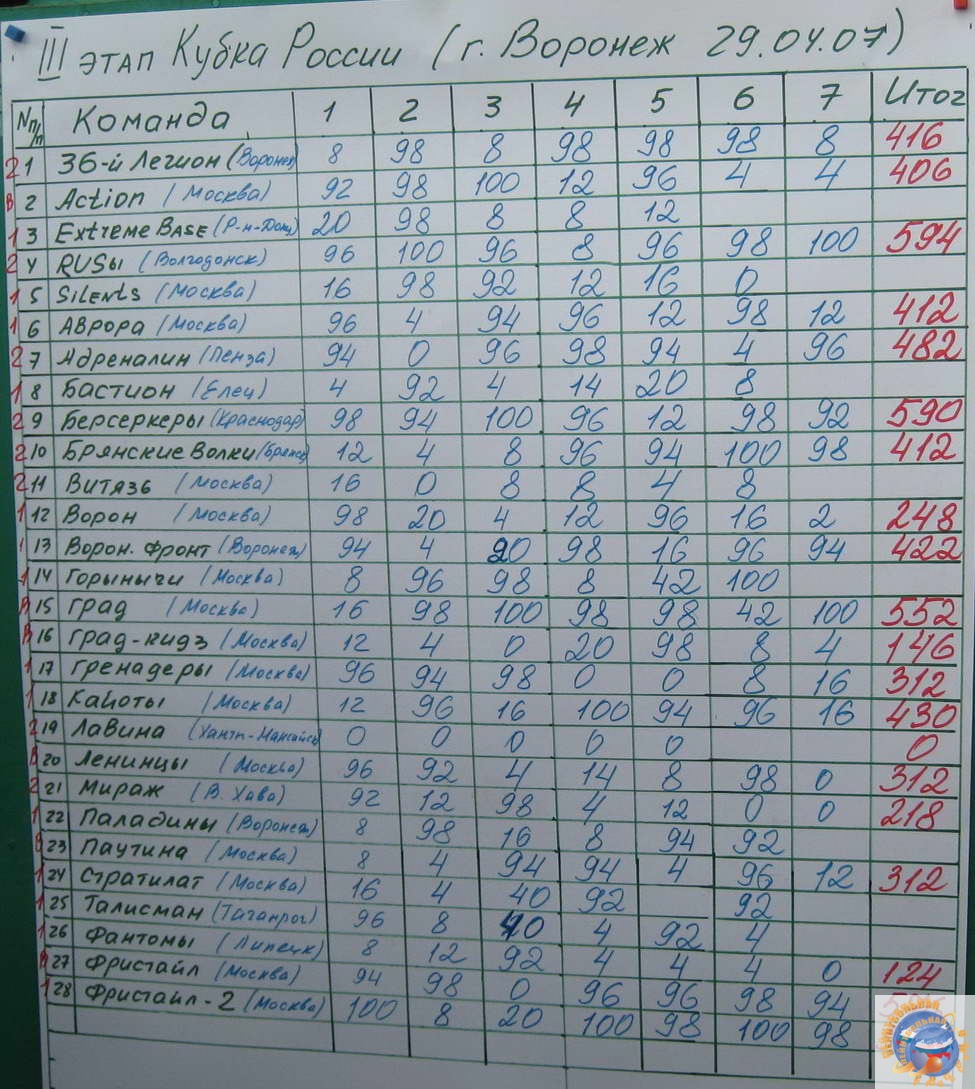 III этап Кубка России (г. Воронеж 29.04.07)
№ п/п Команда 1 2 3 4 5 6 7 Итог
2 1 36-й Легион (Воронеж) 8 98 8 98 98 98 8 416
В 2 Action (Москва) 92 98 100 12 96 4 4 406
1 3 Extreme Base (Р-н-Дону) 20 98 8 8 12
2 4 RUSы (Волгодонск) 96 100 96 8 96 98 100 594
1 5 Silents (Москва) 16 98 92 12 16 0
1 6 Аврора (Москва) 96 4 94 96 12 98 12 412
2 7 Адреналин (Пенза) 94 0 96 98 94 4 96 482
1 8 Бастион (Елец) 4 92 4 14 20 8
2 9 Берсеркеры (Краснодар) 98 94 100 96 12 98 92 590
2 10 Брянские Волки (Брянск) 12 4 8 96 94 100 98 412
2 11 Витязь (Москва) 16 0 8 8 4 8
1 12 Ворон (Москва) 98 20 4 12 96 16 2 248
1 13 Ворон. фронт (Воронеж) 94 4 20 98 16 96 94 422
1 14 Горынычи (Москва) 8 96 98 8 42 100
В 15 Град (Москва) 16 98 100 98 98 42 100 552
В 16 Град-кидз (Москва) 12 4 0 20 98 8 4 146
1 17 Гренадеры (Москва) 96 94 98 0 0 8 16 312
1 18 Кайоты (Москва) 12 96 16 100 94 96 16 430
2 19 Лавина (Ханты-Мансийск) 0 0 0 0 0 0
В 20 Ленинцы (Москва) 96 92 4 14 8 98 0 312
2 21 Мираж (В. Хава) 92 12 98 4 12 0 0 218
1 22 Паладины (Воронеж) 8 98 16 8 94 92
В 23 Паутина (Москва) 8 4 94 94 4 96 12 312
1 24 Стратилат (Москва) 16 4 40 92 92
1 25 Талисман (Таганрог) 96 8 40 4 92 4
1 26 Фантомы (Липецк) 8 12 92 4 4 4 0 124
В 27 Фристайл (Москва) 94 98 0 96 96 98 94
1 28 Фристайл-2 (Москва) 100 8 20 100 98 100 98